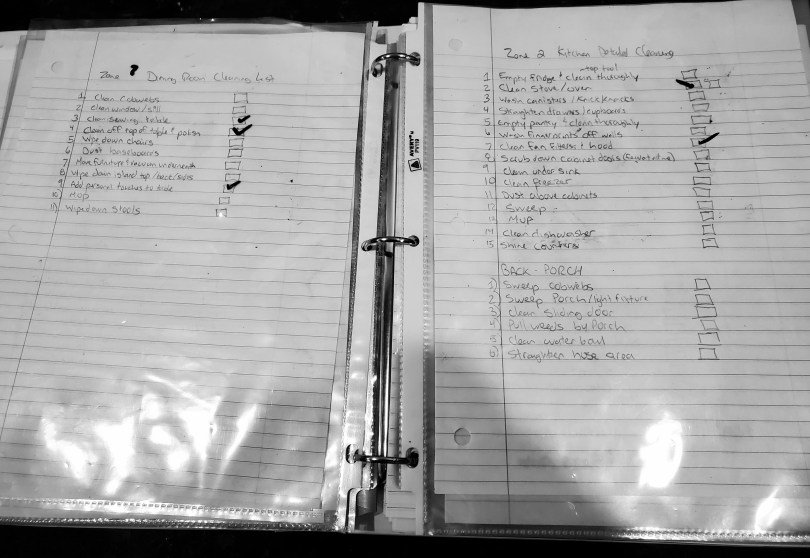 Zone ? Dining Room Cleaning List
1 Clean cobwebs
2 clean window/sill
3 clean sewing table
4 Clean off top of table & polish
5 Wipe down chairs
6 Dust baseboards
7 Move furniture & vacuum underneath
8 Wipe down island top/base/sides
9 Add personal touches to table
10 Mop
11) Wipe down stools
Zone 2 Kitchen Detailed Cleaning
-top too!
1 Empty Fridge & clean thoroughly
2 Clean Stove/oven
3 Wash cannisters / knick/knacks
4 Straighten drawers/cupboards
5 Empty pantry & clean thoroughly
6 Wash fingerprints off walls
7 Clean Fan Filters & hood
8 Scrub down cabinet doors
9 Clean under sink
10 Clean freezer
11 Dust above cabinets
12 Sweep
13 Mop
14 Clean dishwasher
15 Shine counters
BACK-PORCH
1) Sweep cobwebs
2) Sweep Porch/light fixture
3) Clean Sliding door
4) Pull weeds by Porch
5 Clean water bowl
6) Straighten hose area